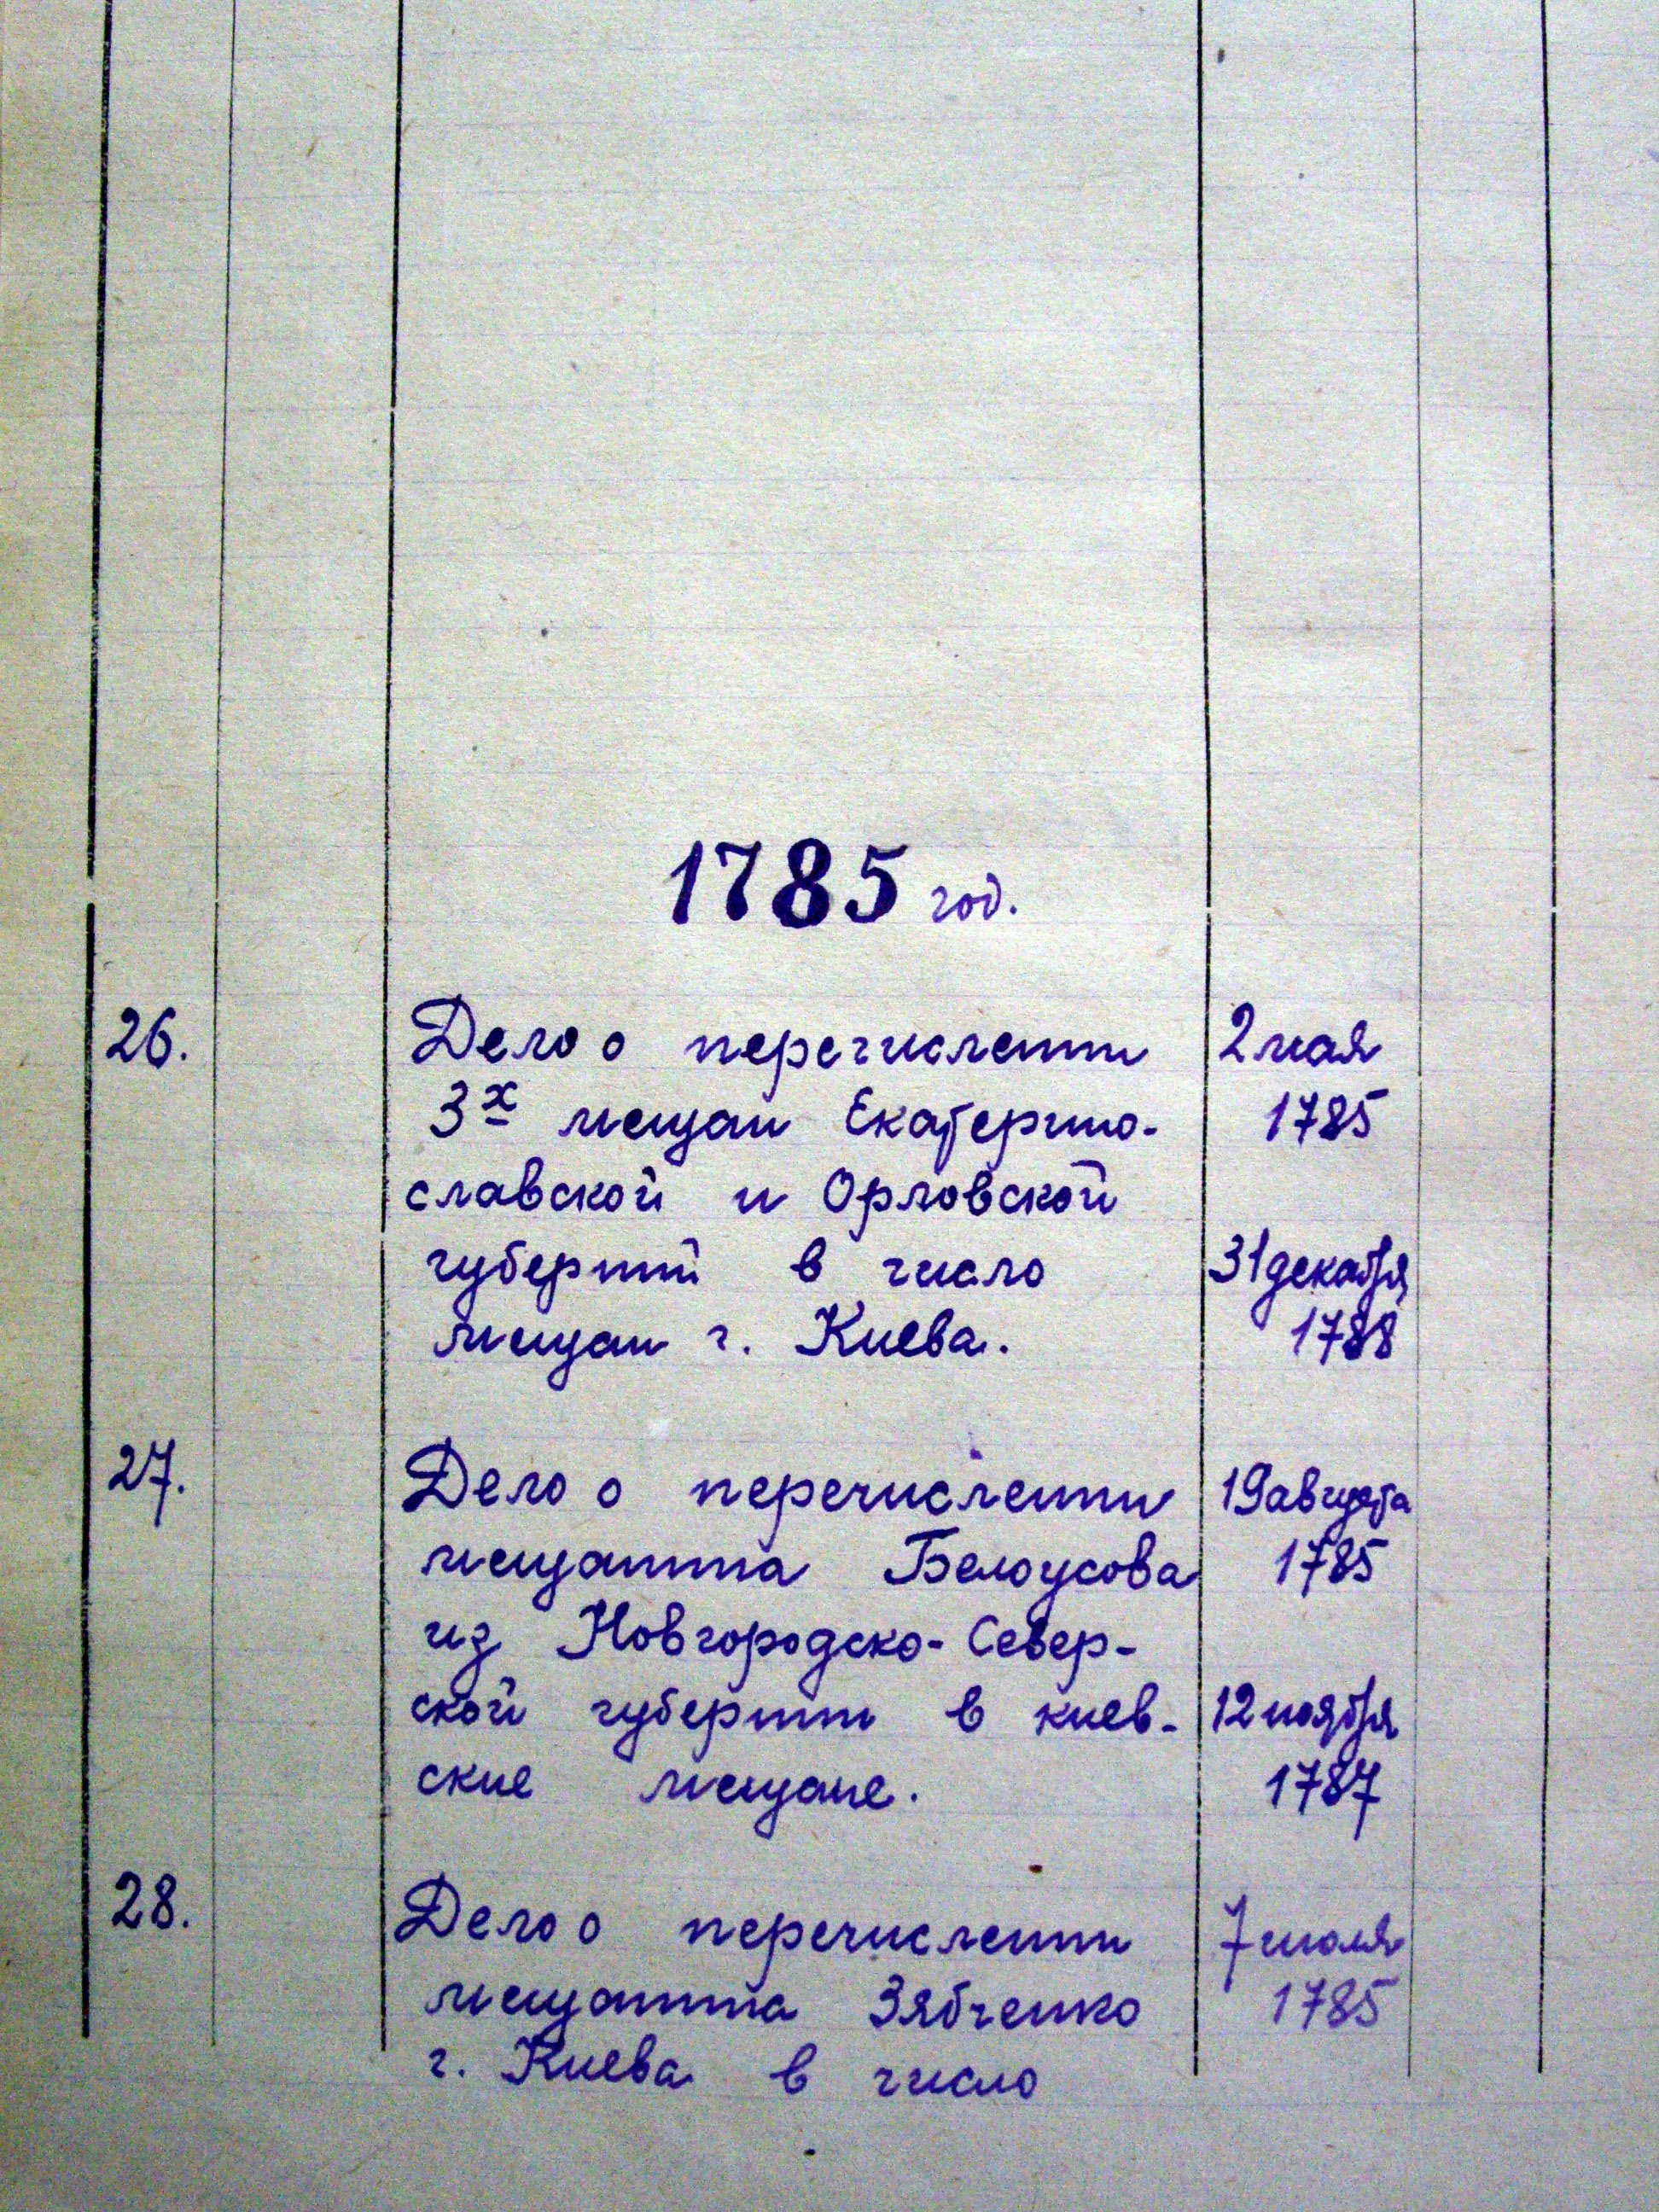 1785 год.
26. Дело о перечислении 2 мая
3х мещан Екатерино- 1785
славской и Орловской
губерний в число 31 декабря
мещан г. Киева. 1788
27. Дело о перечислении 19 августа
мещанина Белоусова 1785
из Новгородско-Север-
ской губернии в киев- 12 ноября
ские мещане. 1787
28. Дело о перечислении 7 июля
мещанина Зябченко 1785
г. Киева в число